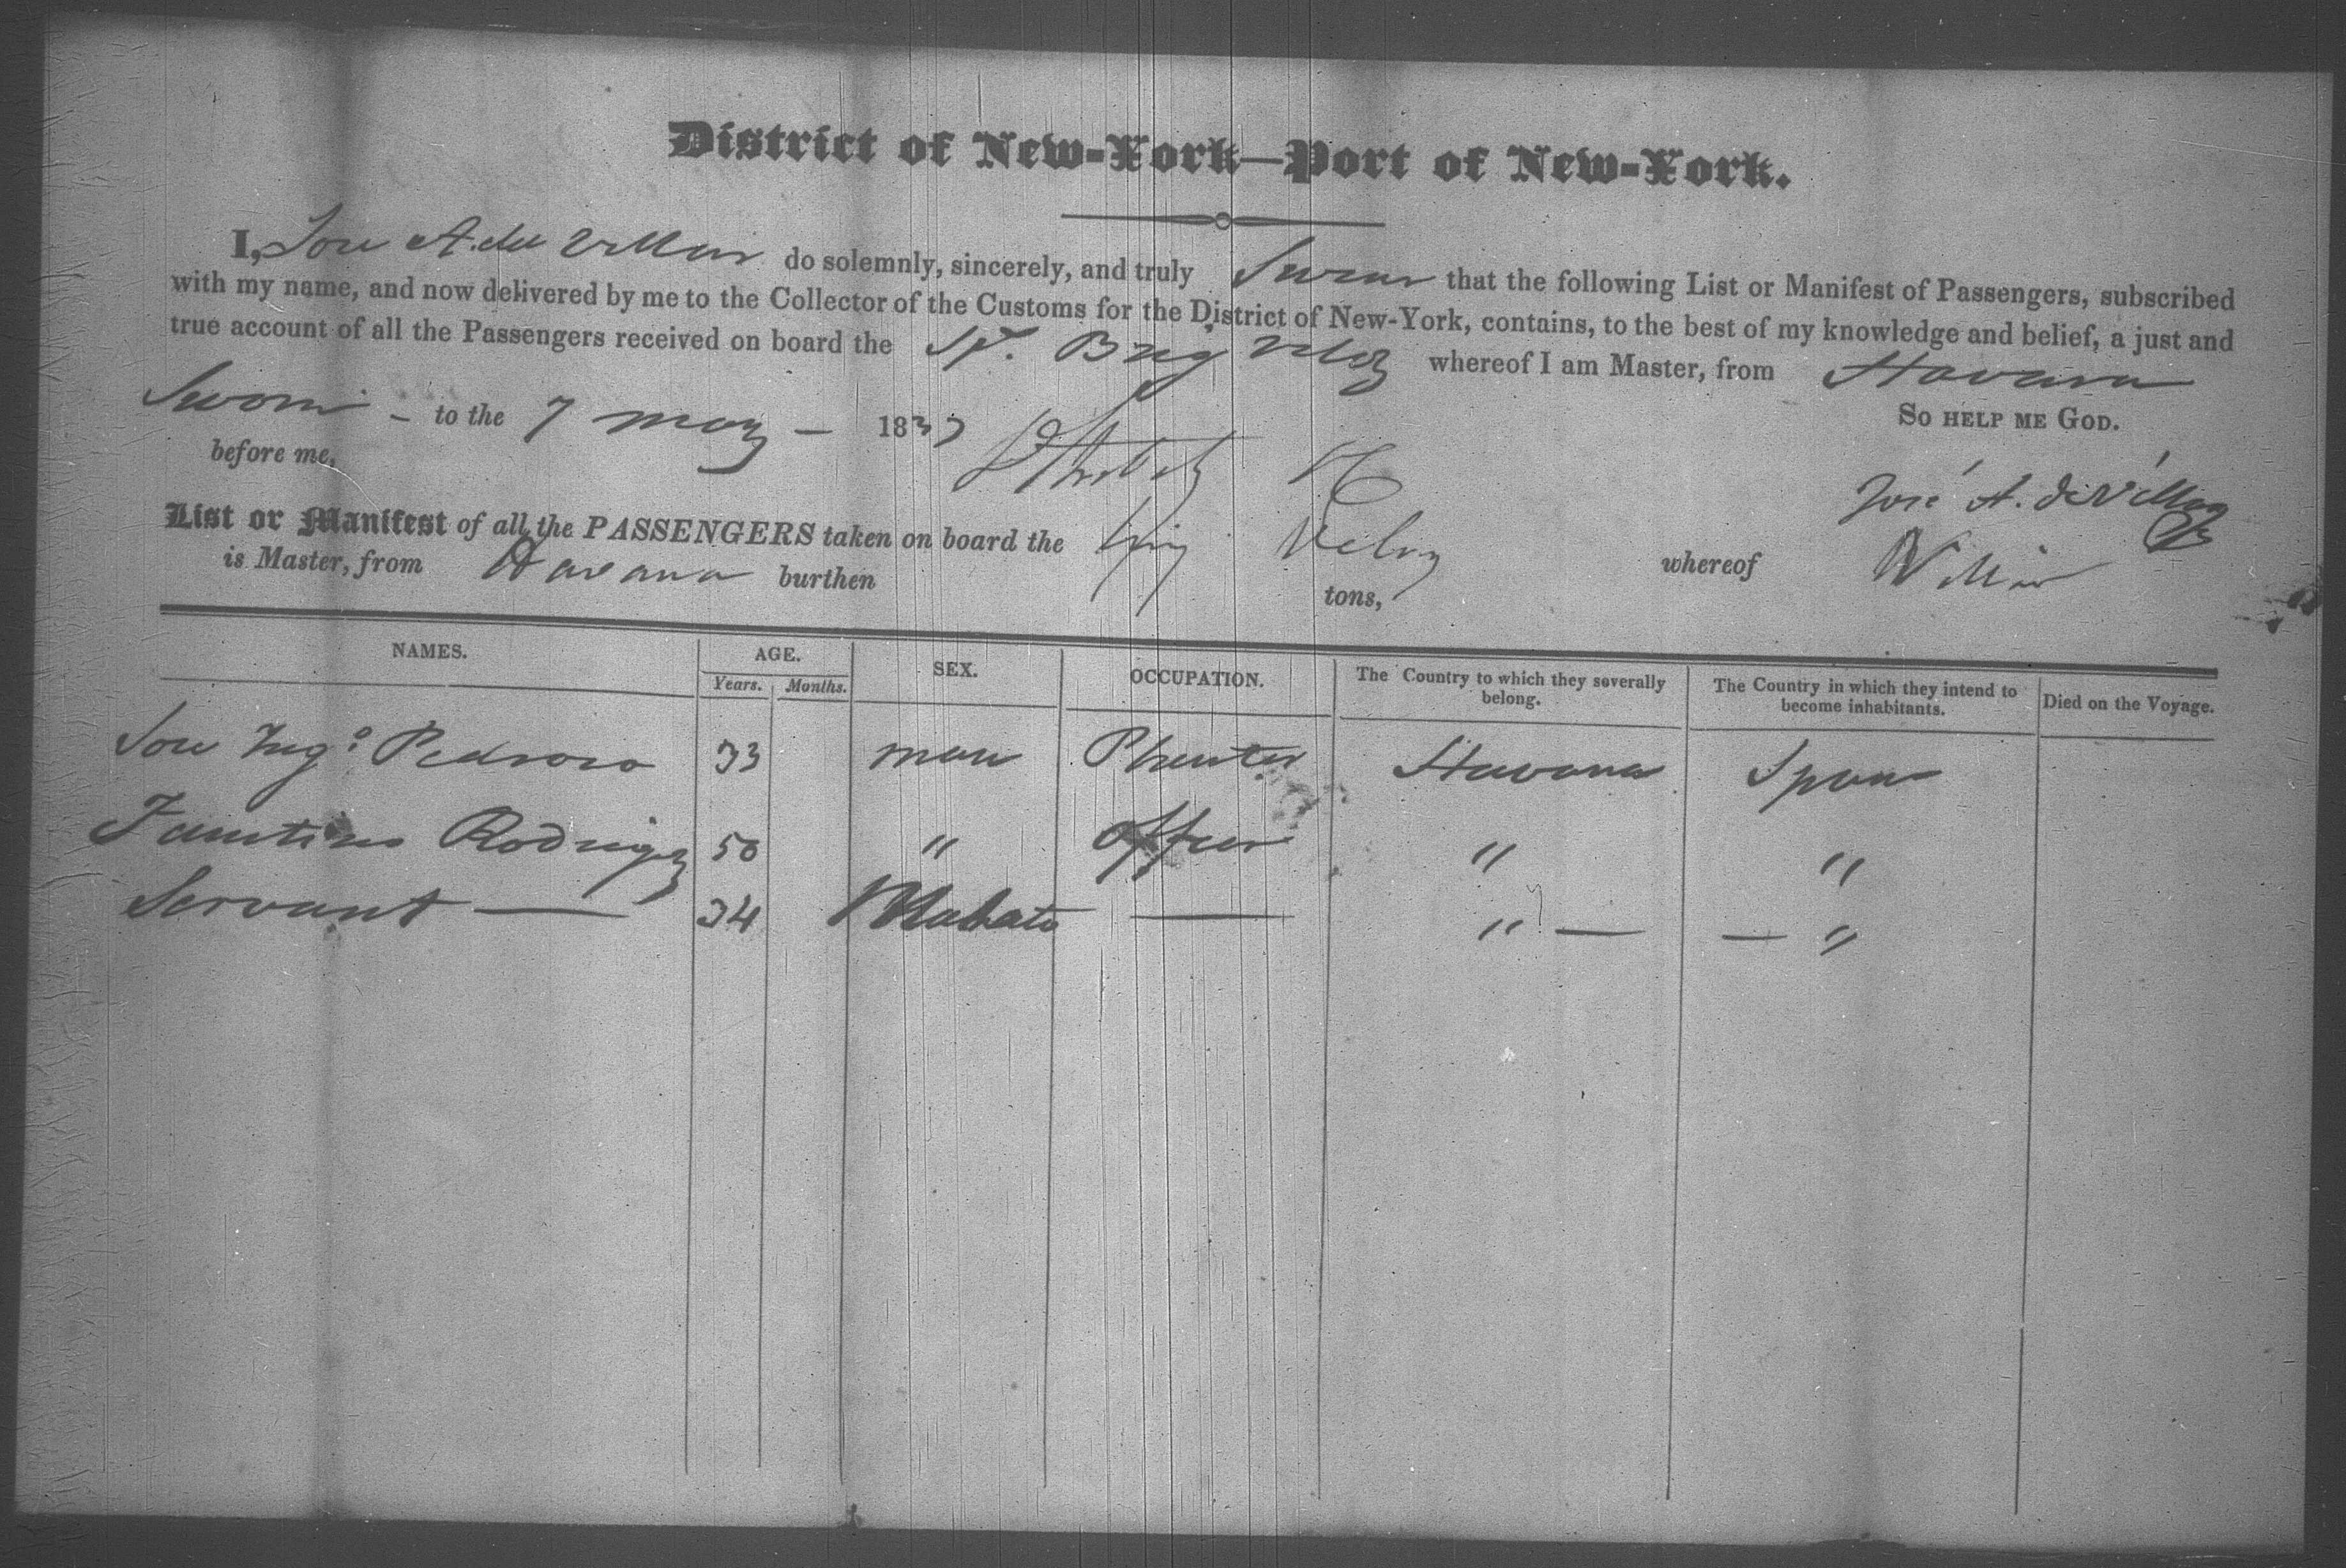 District of New-York—Port of New-York.
I, Jose A. del Villar do solemnly, sincerely, and truly Swear that the following List or Manifest of Passengers, subscribed
with my name, and now delivered by me to the Collector of the Customs for the District of New-York, contains, to the best of my knowledge and belief, a just and
true account of all the Passengers received on board the Sp. Brig Veloz whereof I am Master, from Havana
Sworn - to the 7 may - 1837 So HELP ME GOD.
before me, José A. de Villar
List or Manifest of all the PASSENGERS taken on board the Brig Veloz whereof Villar
is Master, from Havana burthen tons,
NAMES. AGE. SEX. OCCUPATION. The Country to which they severally belong. The Country in which they intend to become inhabitants. Died on the Voyage.
Years. Months.
Jose Pedroso 33 man Planter Havana Spain
Faustino Rodrigz 50 " Officer " "
Servant — 34 Mulato — " — — "